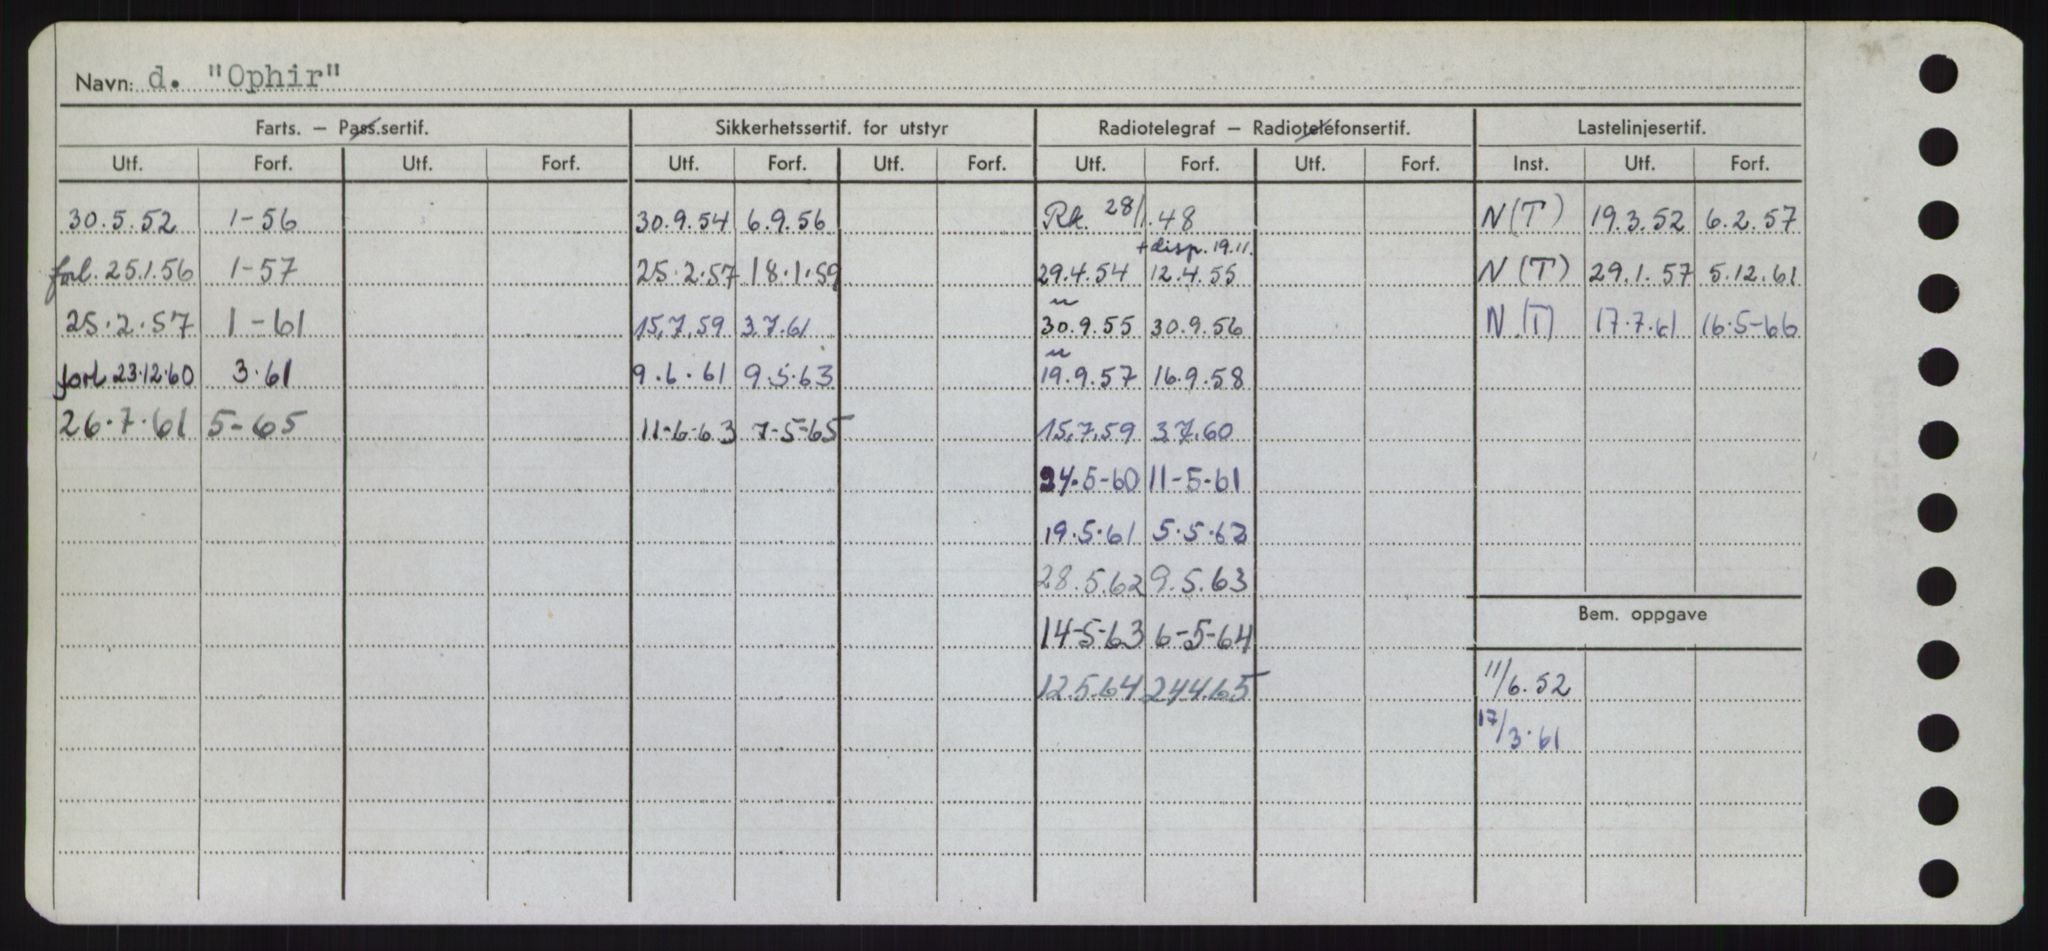 Navn: d. "Ophir"
Farts. – Pass.sertif. Sikkerhetssertif. for utstyr Radiotelegraf – Radiotelefonsertif. Lastelinjesertif.
Utf. Forf. Utf. Forf. Utf. Forf. Utf. Forf. Utf. Forf. Utf. Forf. Inst. Utf. Forf.
30.5.52 1-56 30.9.54 6.9.56 Rk. 28/1.48 N(T) 19.3.52 6.2.57
+disp. 19.11.
forl. 25.1.56 1-57 25.2.57 18.1.59 29.4.54 12.4.55 N(T) 29.1.57 5.12.61
25.2.57 1-61 15.7.59 3.7.61 30.9.55 30.9.56 N(T) 17.7.61 16.5-66
forl 23.12.60 3.61 9.6.61 9.5.63 19.9.57 16.9.58
26.7.61 5-65 11-6-63 7-5-65 15.7.59 3.7.60
24.5-60 11-5-61
19.5.61 5.5.62
28.5.62 9.5.63
Bem. oppgave
14-5-63 6-5-64
12.5.64 24.4.65 11/6.52
17/3.61